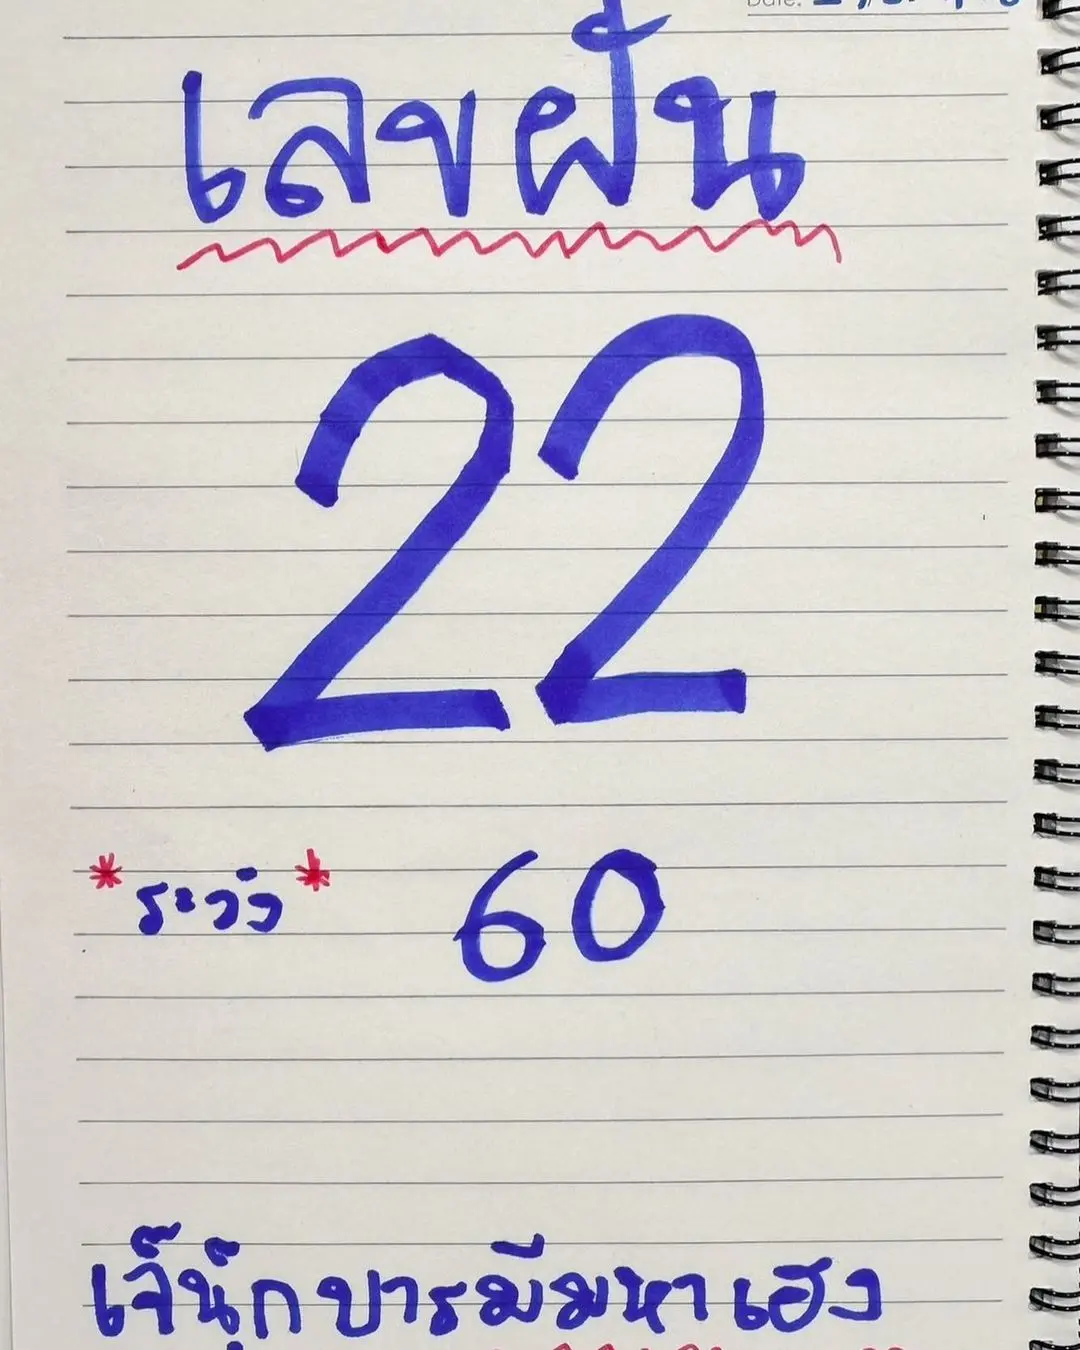 Date:
เลขฝัน
22
*ระวัง* 60
เจ๊นุ๊กบารมีมหาเฮง